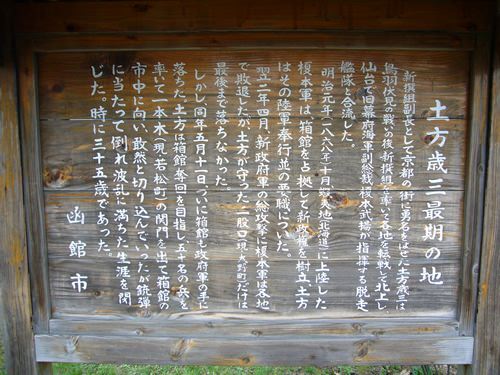 土方歳三最期の地
新撰組副長として京都の街に勇名をはせた土方歳三は
鳥羽伏見の戦いの後、新撰組を率い各地を転戦して北上し
仙台で旧幕府海軍副総裁榎本武揚が指揮する脱走
艦隊と合流した。
明治元年(一八六八年)十月、蝦夷地(北海道)に上陸した
榎本軍は、箱館を占拠して新政権を樹立、土方
はその陸軍奉行並の要職についた。
翌二年四月、新政府軍の総攻撃に榎本軍は各地
で敗退したが、土方が守った二股口(現、大野町)だけは
最後まで落ちなかった。
しかし同年五月十一日、ついに箱館も政府軍の手に
落ちた。土方は箱館奪回を目指し、五十名の兵を
率いて一本木(現、若松町)の関門を出て箱館の
市中に向い、敢然と切り込んでいったが銃弾
に当たって倒れ波乱に満ちた生涯を閉
じた。時に三十五歳であった。
函館市